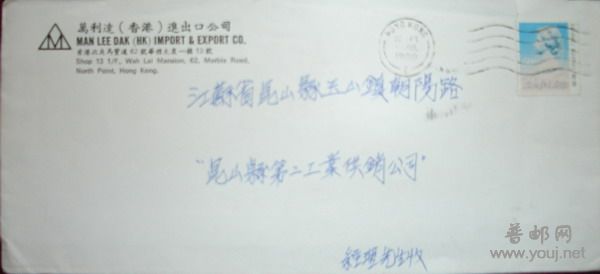 萬利達（香港）進出口公司
MAN LEE DAK (HK) IMPORT & EXPORT CO.
香港北角馬寶道62號華禮大廈一樓13號
Shop 13 1/F., Wah Lai Mansion, 62, Marble Road,
North Point, Hong Kong.
HONG KONG
江蘇省昆山縣玉山鎮朝陽路
"昆山縣第二工業供銷公司"
經理先生收
普邮网
www.youj.net